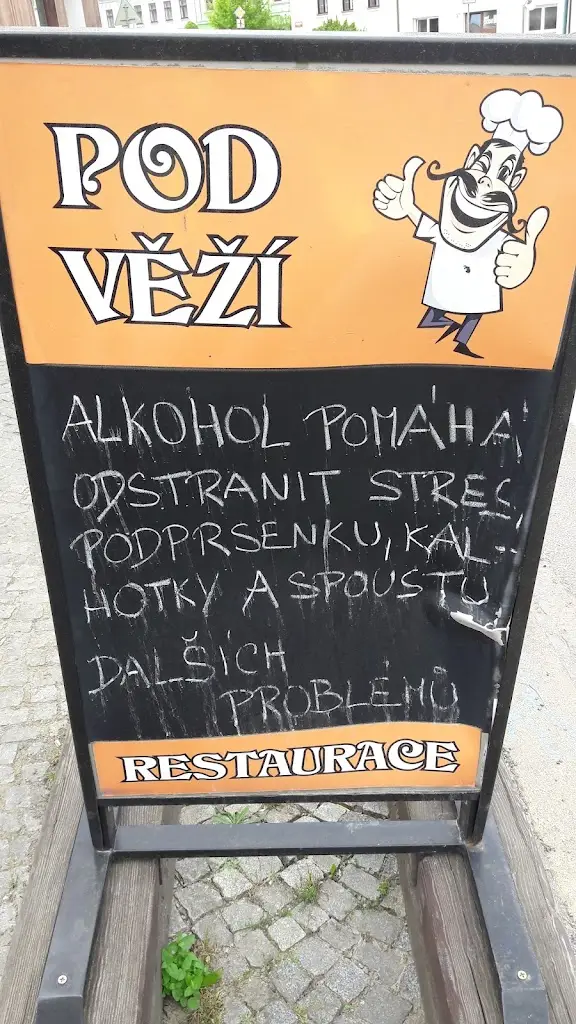 POD
VĚŽÍ
ALKOHOL POMÁHÁ
ODSTRANIT STRES,
PODPRSENKU, KAL-
HOTKY A SPOUSTU
DALŠÍCH
PROBLÉMŮ
RESTAURACE